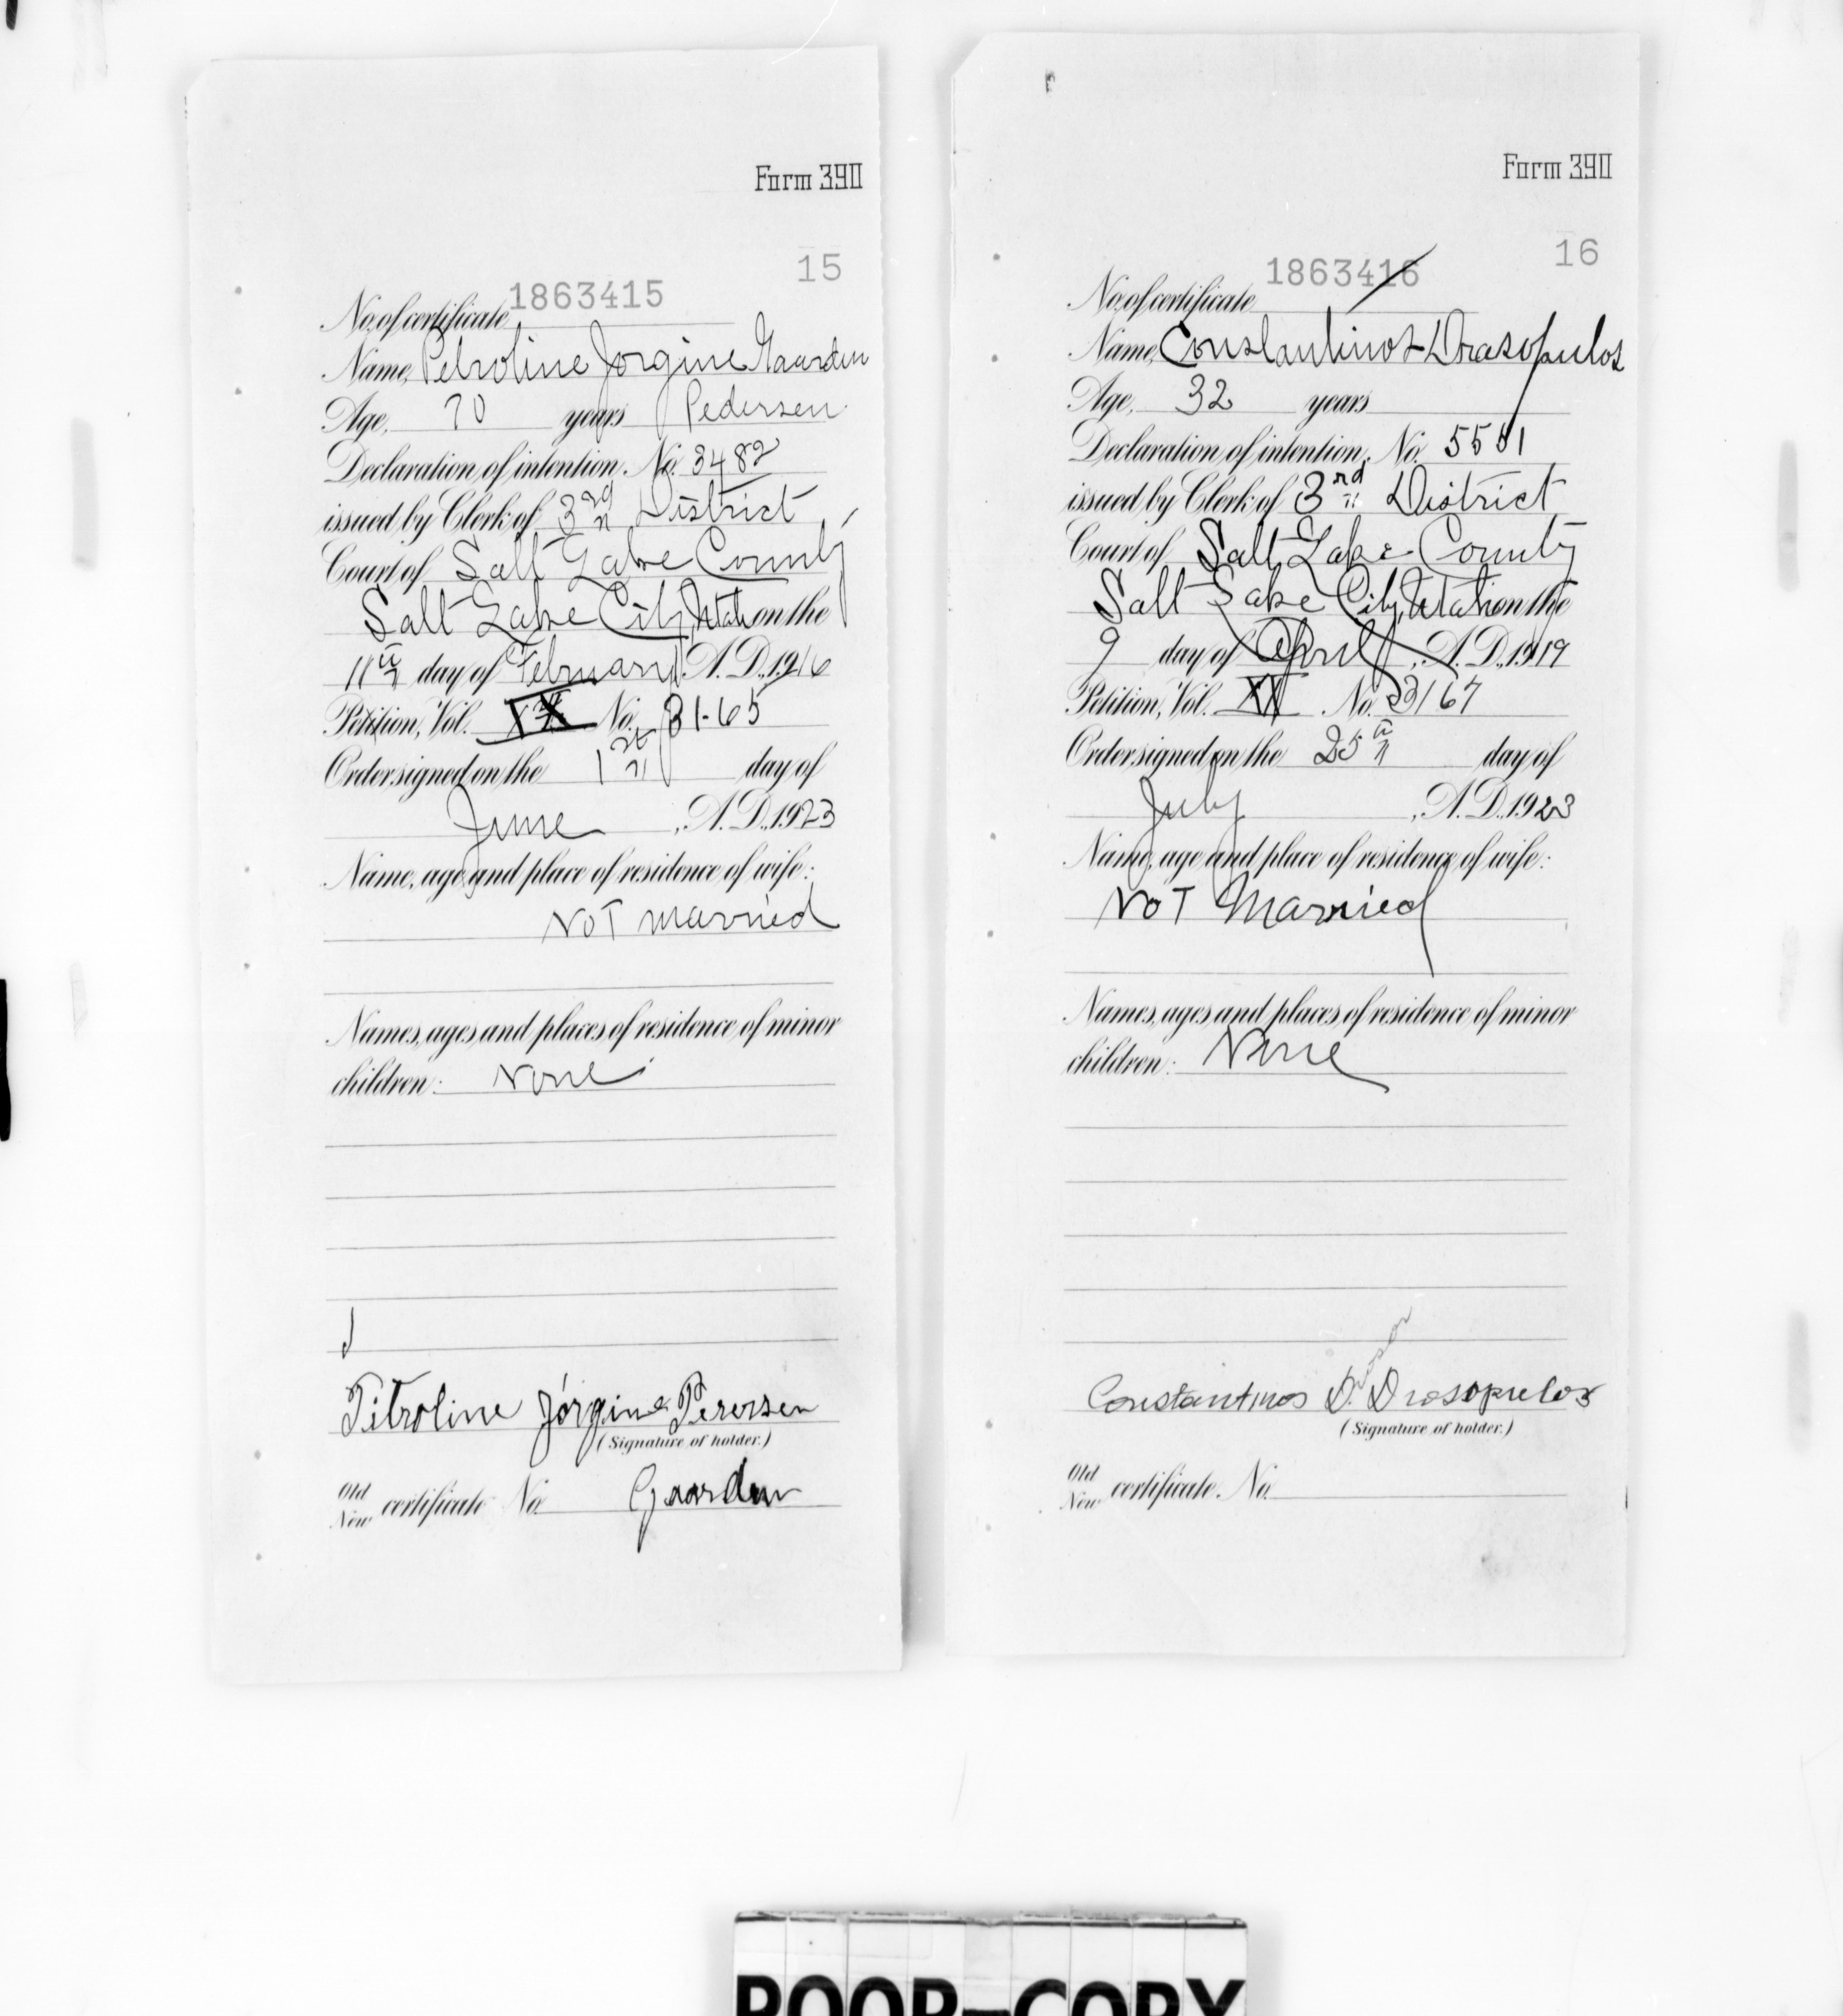 Form 390
15
No. of certificate 1863415
Name, Petroline Jorgine Gaarden
Age, 70 years Pedersen
Declaration of intention, No. 3482
issued by Clerk of 3rd District
Court of Salt Lake County
Salt Lake City, Utah on the
11th day of February, A. D., 1916
Petition, Vol. No. 3165
Order signed on the 1st day of
June, A. D., 1923
Name, age and place of residence of wife:
Not married
Names, ages and places of residence of minor
children: None
Petroline Jorgine Pedersen
(Signature of holder.)
Old
New certificate No. Gaarden
Form 390
16
No. of certificate 1863416
Name, Constantinos Drasopulos
Age, 32 years
Declaration of intention, No. 5551
issued by Clerk of 3rd District
Court of Salt Lake County
Salt Lake City, Utah on the
9 day of April, A. D., 1919
Petition, Vol. XX No. 3167
Order signed on the 25th day of
July, A. D., 1923
Name, age and place of residence of wife:
Not Married
Names, ages and places of residence of minor
children: None
Constantinos D. Drosopulos
(Signature of holder.)
Old
New certificate No.
POOR-COPY